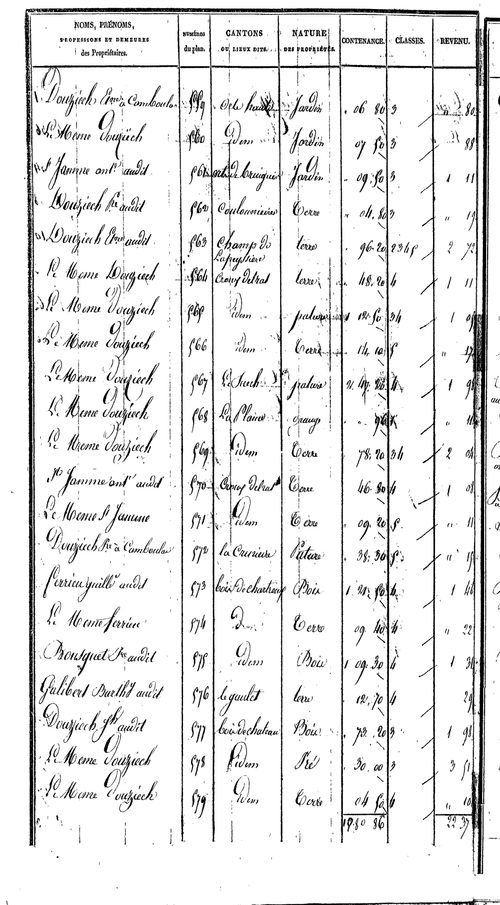 NOMS, PRÉNOMS, PROFESSIONS ET DEMEURES des Propriétaires. NUMÉROS du plan. CANTONS OU LIEUX DITS. NATURE DES PROPRIÉTÉS. CONTENANCE. CLASSES. REVENU.
Douziech à Camboulan 559 Jardin 06 80 3 " 80
Le Meme Douziech 560 Idem Jardin 07 50 3 " 88
St Jamme ant. audit 561 Jardin 09 50 3 1 11
Douziech audit 562 Coulounieire Terre 04 80 3 " 19
Douziech audit 563 Champ de Lapeyssiere terre 96 20 2345 2 72
Le Meme Douziech 564 Croux delrat terre 48 20 4 1 11
Le Meme Douziech 565 idem pature 1 12 50 34 1 05
Le Meme Douziech 566 idem Terre 14 10 5 "
Le Meme Douziech 567 Le Suech pature 4 1 98
Le Meme Douziech 568 La Plaine "
Le Meme Douziech 569 Idem Terre 78 20 34 2 04
St Jamme ant. audit 570 Croux delrat Terre 46 80 4 1 08
Le Meme St Jamme 571 Idem Terre 09 20 5 " 11
Douziech à Camboulan 572 Pature 38 30 5 " 15
ferrieu guill. audit 573 Bois 1 21 50 4 1 46
Le Meme ferrieu 574 Terre 09 40 4 " 22
Bousquet audit 575 Idem Bois 1 09 30 4 1 36
Galibert Barth. audit 576 le gaulet terre 12 70 4 29
Douziech Jh audit 577 bois de chateau Bois 73 20 3 1 98
Le Meme Douziech 578 Idem Pré 30 00 3 3 51
Le Meme Douziech 579 Idem Terre 04 50 4 " 10
22 37